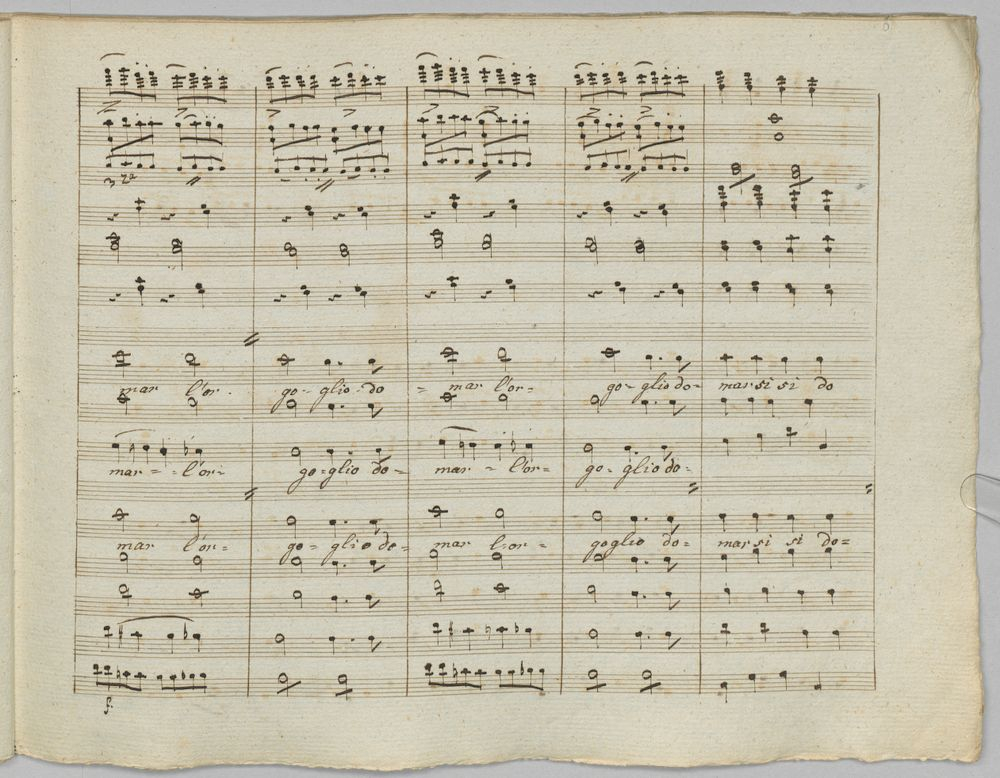 3za
mar l'or- go-glio-do = mar l'or= go-glio do= mar si si do
mar=-l'or- go=glio do= mar - l'or= go-glio do=
mar l'or= go=glio do= mar l'or= goglio do= mar si si do=
f.